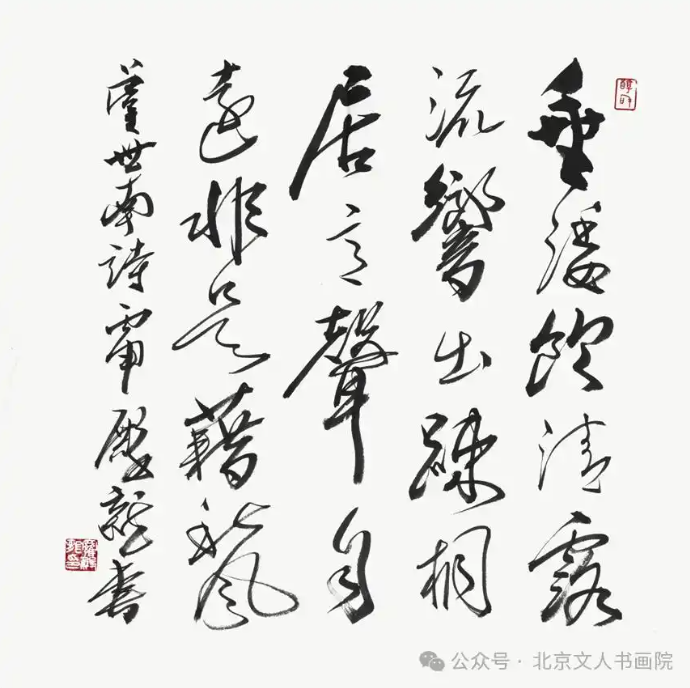 垂緌飲清露
流響出踈桐
居高聲自
遠非是藉秋風
虞世南詩 龍書
公众号 · 北京文人书画院